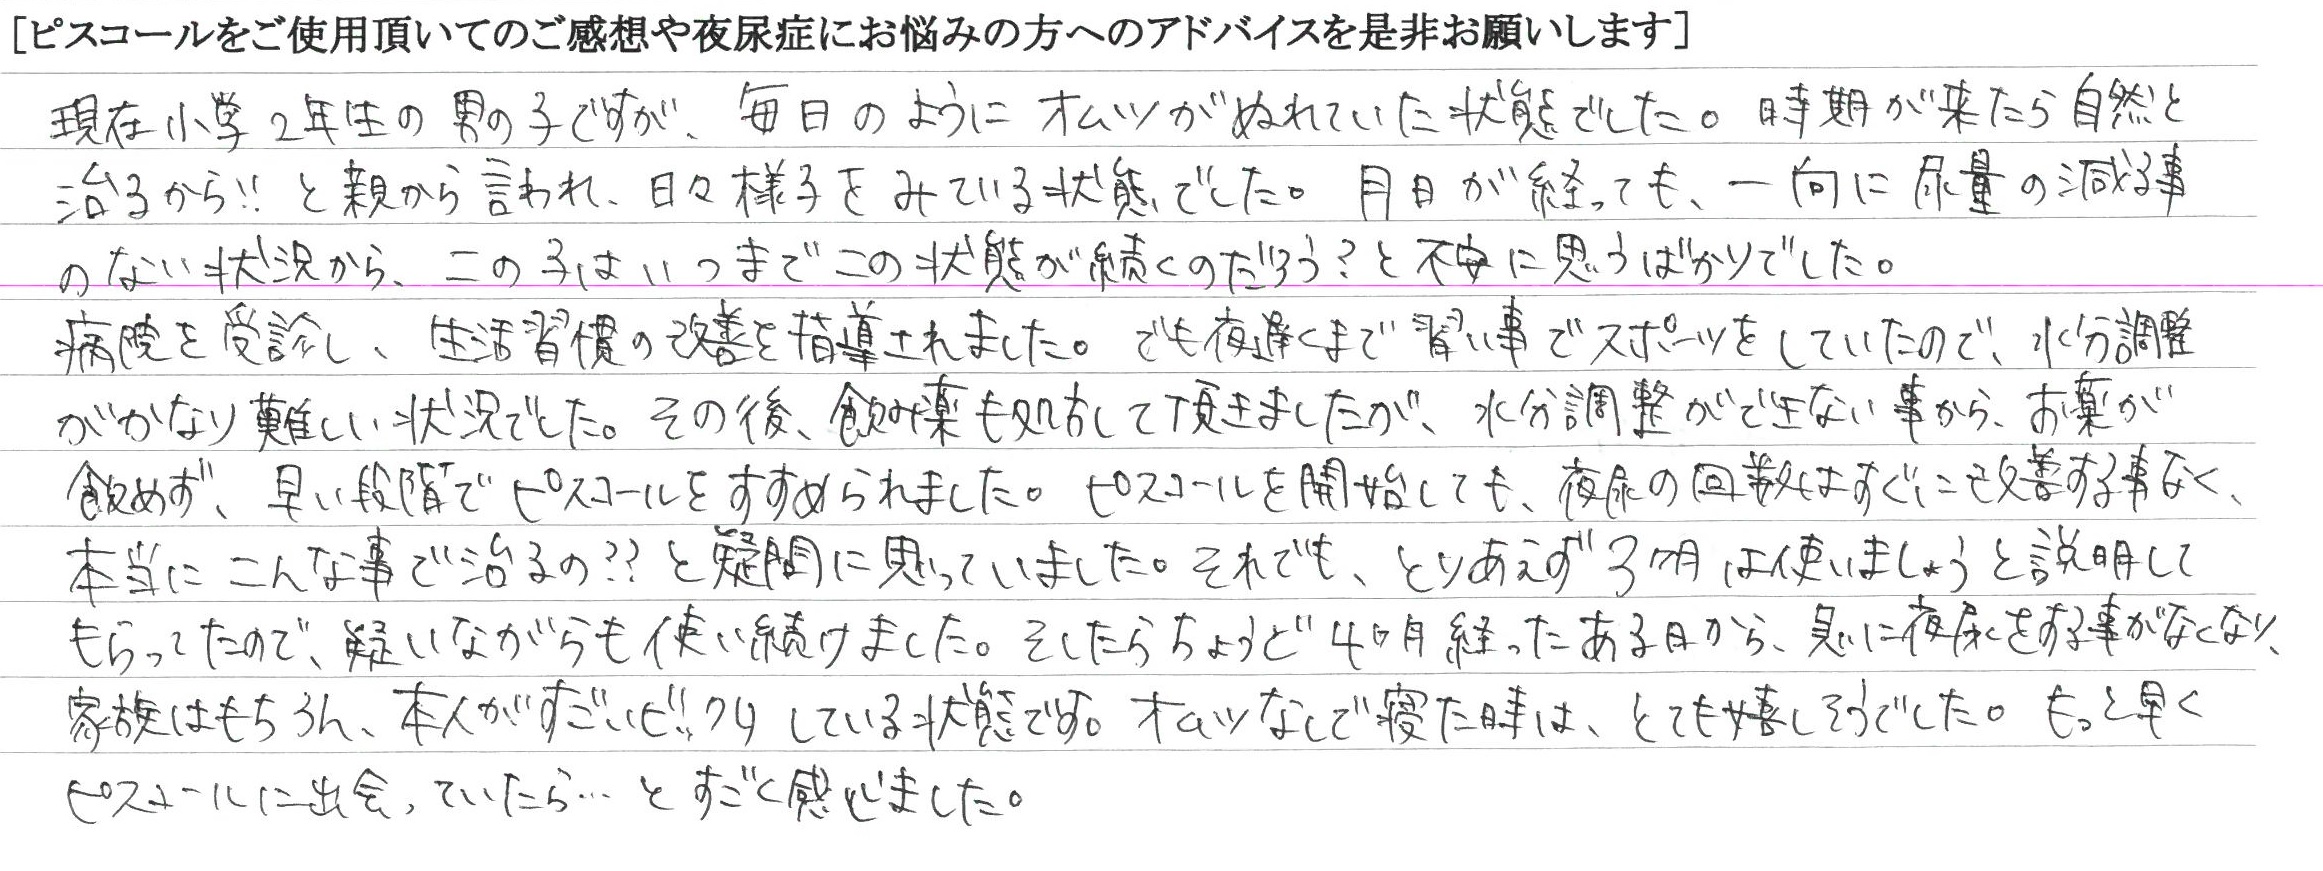 [ピスコールをご使用頂いてのご感想や夜尿症にお悩みの方へのアドバイスを是非お願いします]
現在小学2年生の男の子ですが、毎日のようにオムツがぬれていた状態でした。時期が来たら自然と
治るから!!と親から言われ、日々様子をみている状態でした。月日が経っても、一向に尿量の減る事
のない状況から、この子はいつまでこの状態が続くのだろう?と不安に思うばかりでした。
病院を受診し、生活習慣の改善を指導されました。でも夜遅くまで習い事でスポーツをしていたので、水分調整
がかなり難しい状況でした。その後、飲み薬も処方して頂きましたが、水分調整ができない事から、お薬が
飲めず、早い段階でピスコールをすすめられました。ピスコールを開始しても、夜尿の回数はすぐにも改善する事なく、
本当にこんな事で治るの??と疑問に思っていました。それでも、とりあえず3ヶ月は使いましょうと説明して
もらってたので、疑いながらも使い続けました。そしたらちょうど4ヶ月経ったある日から、急に夜尿をする事がなくなり、
家族はもちろん、本人がすごいビックリしている状態です。オムツなしで寝た時は、とても嬉しそうでした。もっと早く
ピスコールに出会っていたら…とすごく感じました。